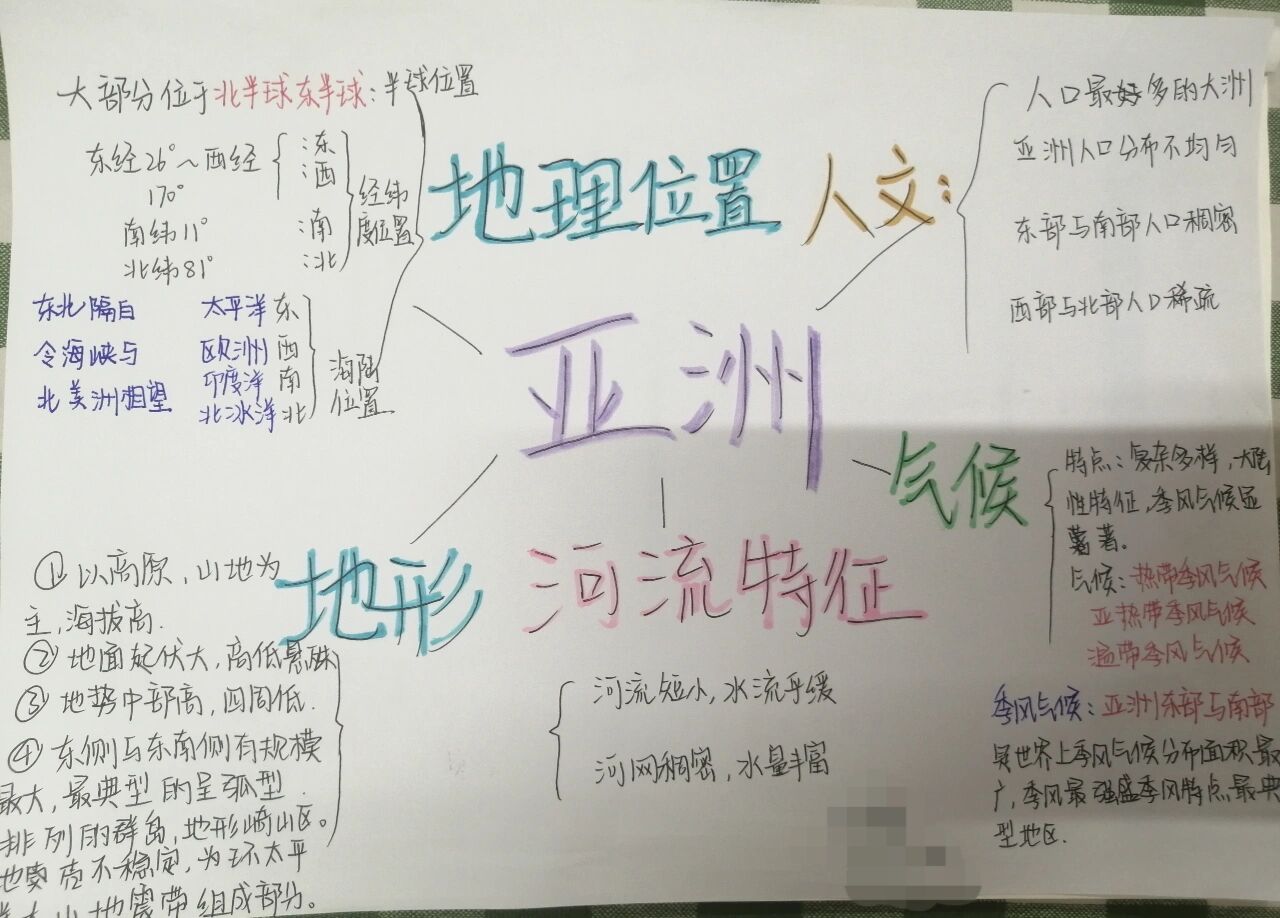 大部分位于北半球东半球：半球位置
东经26°～西经
170°
南纬11°
北纬81°
:东
:西
:南
:北
经纬
度位置
东北隔白
令海峡与
北美洲相望
太平洋东
欧洲州西
印度洋南
北冰洋北
海陆
位置
地理位置
人文：
人口最多的大洲
亚洲人口分布不均匀
东部与南部人口稠密
西部与北部人口稀疏
亚洲
气候
特点：复杂多样，大陆
性特征，季风气候显
著。
气候：热带季风气候
亚热带季风气候
温带季风气候
季风气候：亚洲东部与南部
是世界上季风气候分布面积最
广，季风最强盛季风特点最典
型地区.
地形
①以高原，山地为
主，海拔高.
②地面起伏大，高低悬殊
③地势中部高，四周低.
④东侧与东南侧有规模
最大，最典型的呈弧型
排列的群岛，地形崎山区。
地壳不稳定，为环太平
山地震带组成部分。
河流特征
河流短小，水流平缓
河网稠密，水量丰富